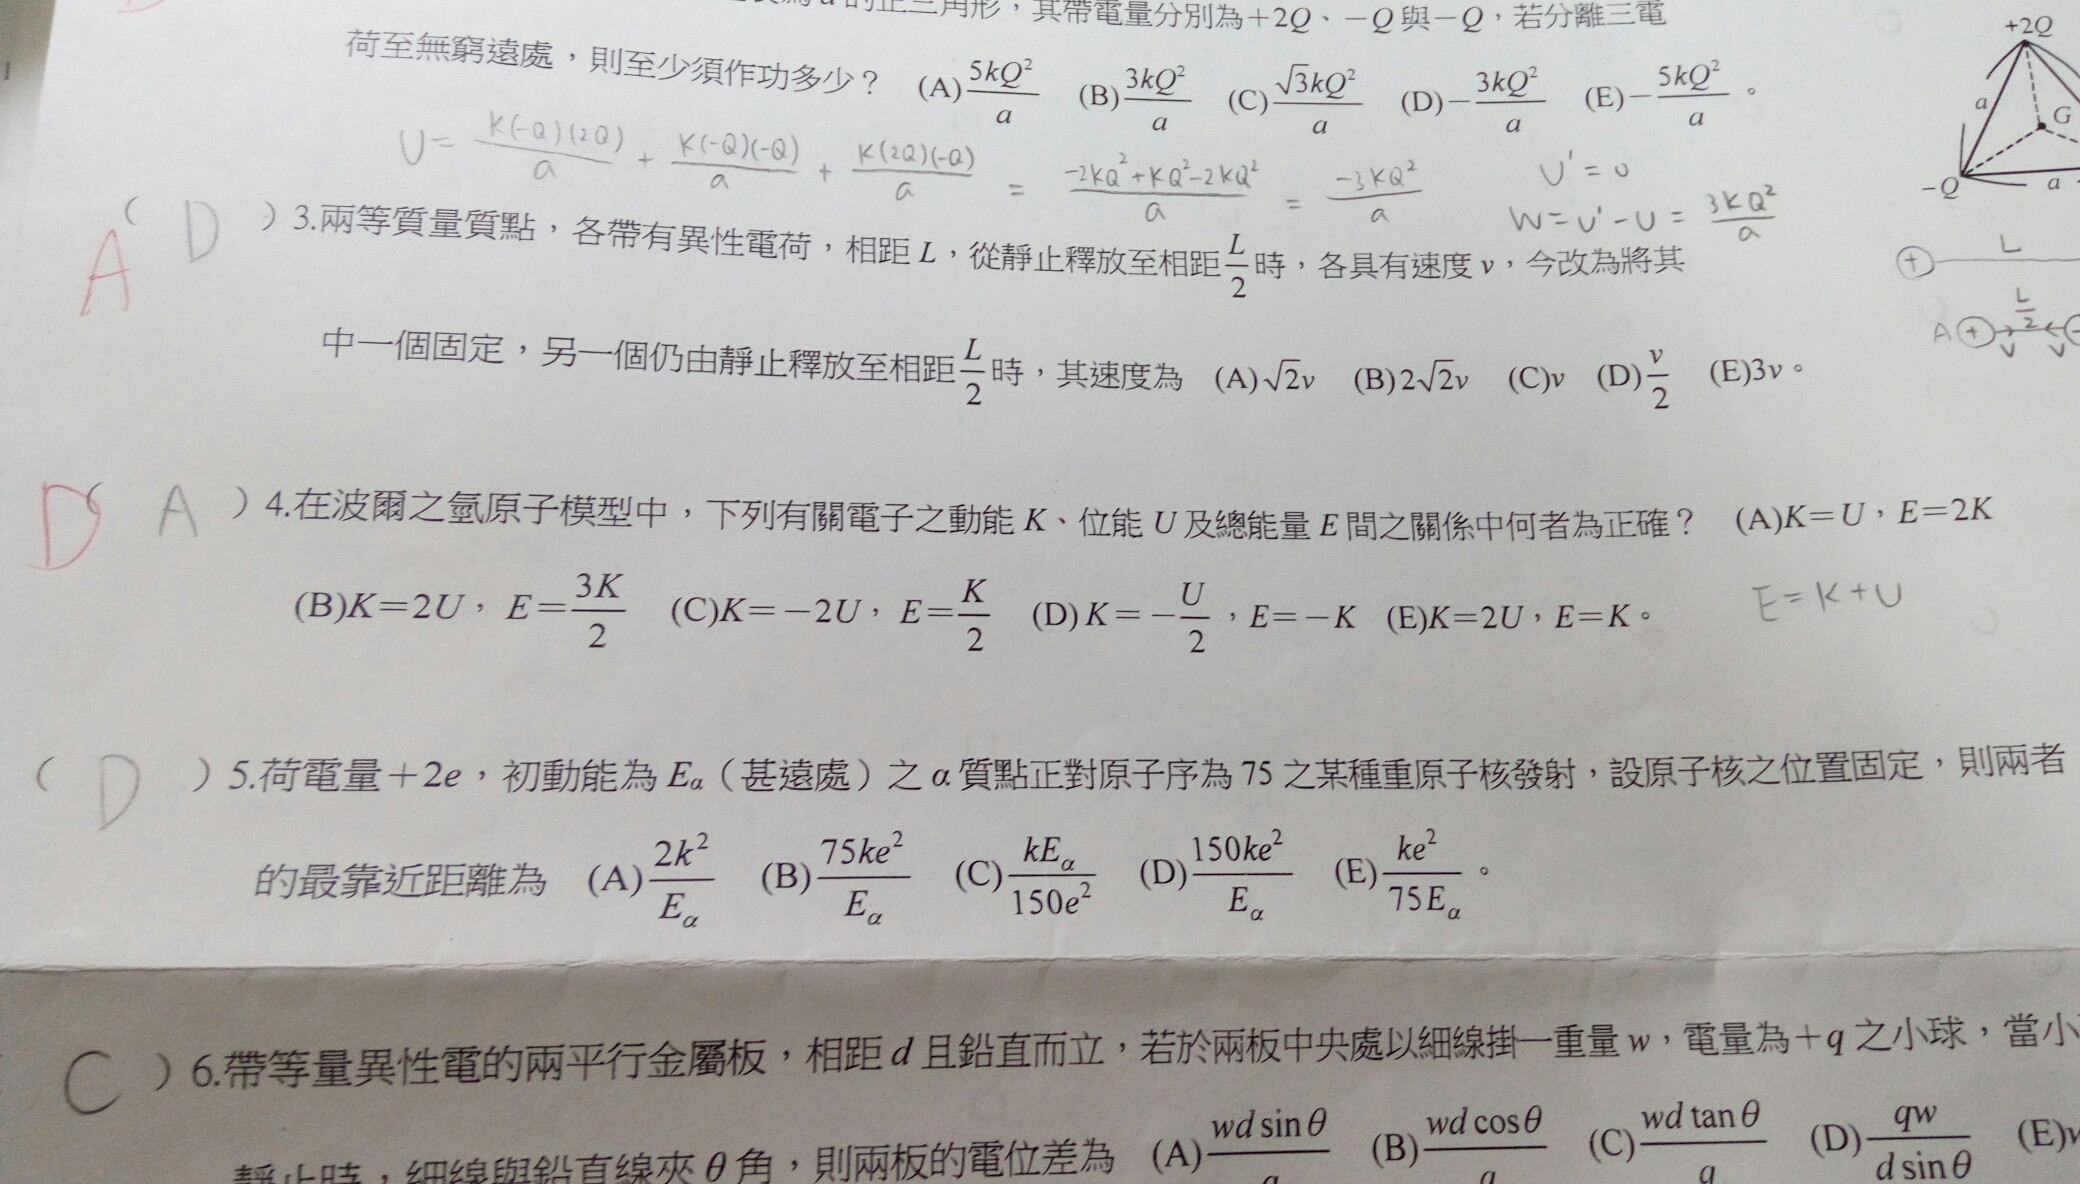 的正三角形，其帶電量分別為+2Q、−Q與−Q，若分離三電
荷至無窮遠處，則至少須作功多少？ (A)5kQ²/a (B)3kQ²/a (C)√3kQ²/a (D)−3kQ²/a (E)−5kQ²/a。
+2Q
a
G
−Q
a
U= K(-Q)(2Q)/a + K(-Q)(-Q)/a + K(2Q)(-Q)/a = -2KQ²+KQ²-2KQ²/a = -3KQ²/a
U'=0
W=U'-U=3KQ²/a
A
( D )3.兩等質量質點，各帶有異性電荷，相距L，從靜止釋放至相距L/2時，各具有速度v，今改為將其
中一個固定，另一個仍由靜止釋放至相距L/2時，其速度為 (A)√2v (B)2√2v (C)v (D)v/2 (E)3v。
+ L
A + L/2
V V
D
( A )4.在波爾之氫原子模型中，下列有關電子之動能K、位能U及總能量E間之關係中何者為正確？ (A)K=U，E=2K
(B)K=2U，E=3K/2 (C)K=−2U，E=K/2 (D)K=−U/2，E=−K (E)K=2U，E=K。
E=K+U
( D )5.荷電量+2e，初動能為Eα（甚遠處）之α質點正對原子序為75之某種重原子核發射，設原子核之位置固定，則兩者
的最靠近距離為 (A)2k²/Eα (B)75ke²/Eα (C)kEα/150e² (D)150ke²/Eα (E)ke²/75Eα。
C )6.帶等量異性電的兩平行金屬板，相距d且鉛直而立，若於兩板中央處以細線掛一重量w，電量為+q之小球，當小
靜止時，細線與鉛直線夾θ角，則兩板的電位差為 (A)wd sinθ/q (B)wd cosθ/q (C)wd tanθ/q (D)qw/d sinθ (E)